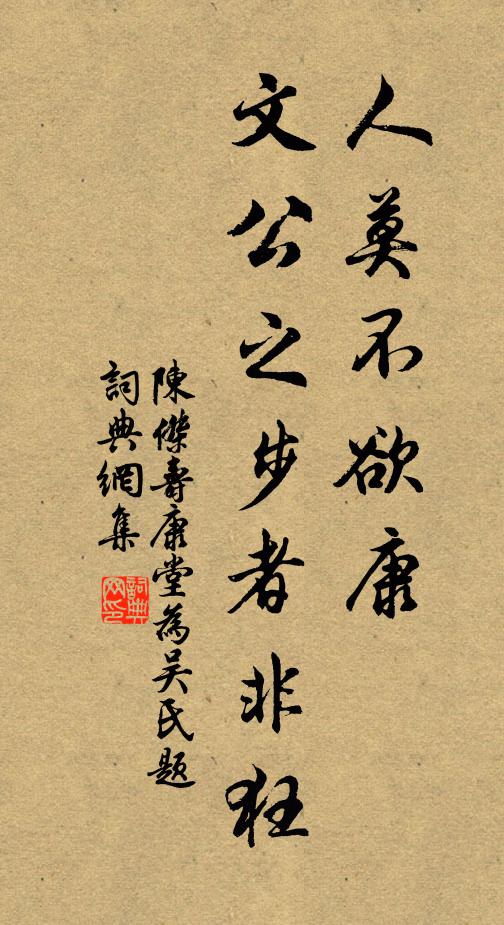 人莫不欲康
文公之步者非狂
陳傑壽康堂為吳氏題
詞典網集
詞典
网印